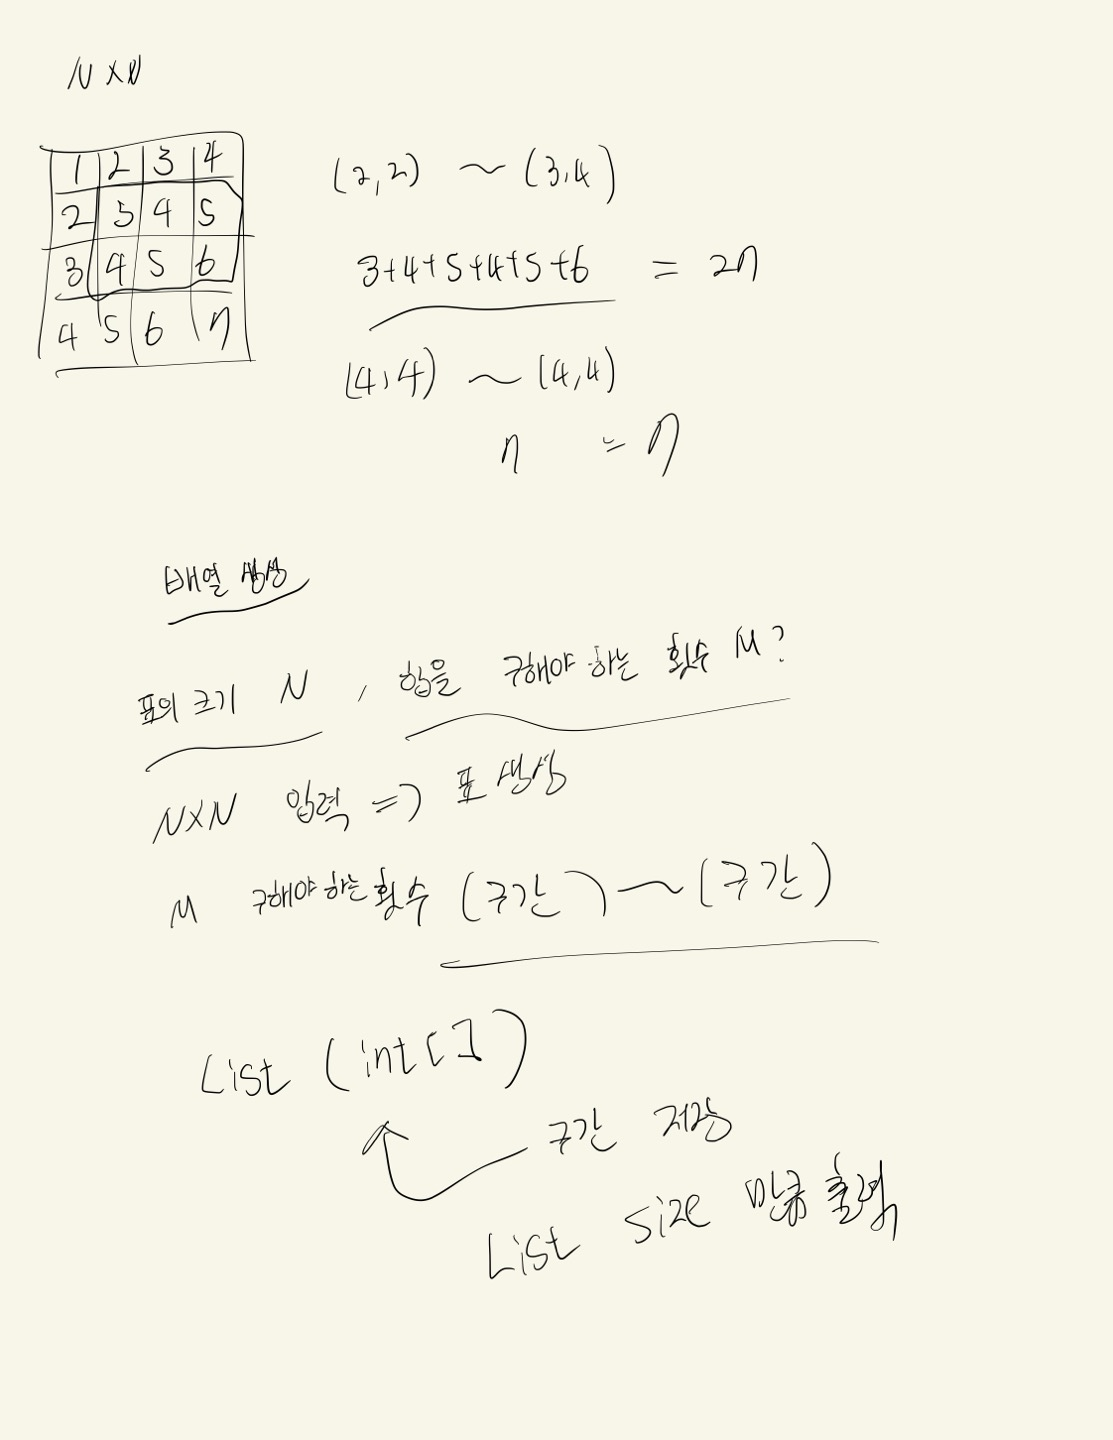 N×N
1 2 3 4
2 3 4 5
3 4 5 6
4 5 6 7
(2,2) ~ (3,4)
3+4+5+4+5+6 = 27
(4,4) ~ (4,4)
7 = 7
배열 생성
표의 크기 N , 합을 구해야 하는 횟수 M?
N×N 입력 => 표 생성
M 구해야 하는 횟수 (구간) ~ (구간)
List (int[])
구간 저장
List size 만큼 출력